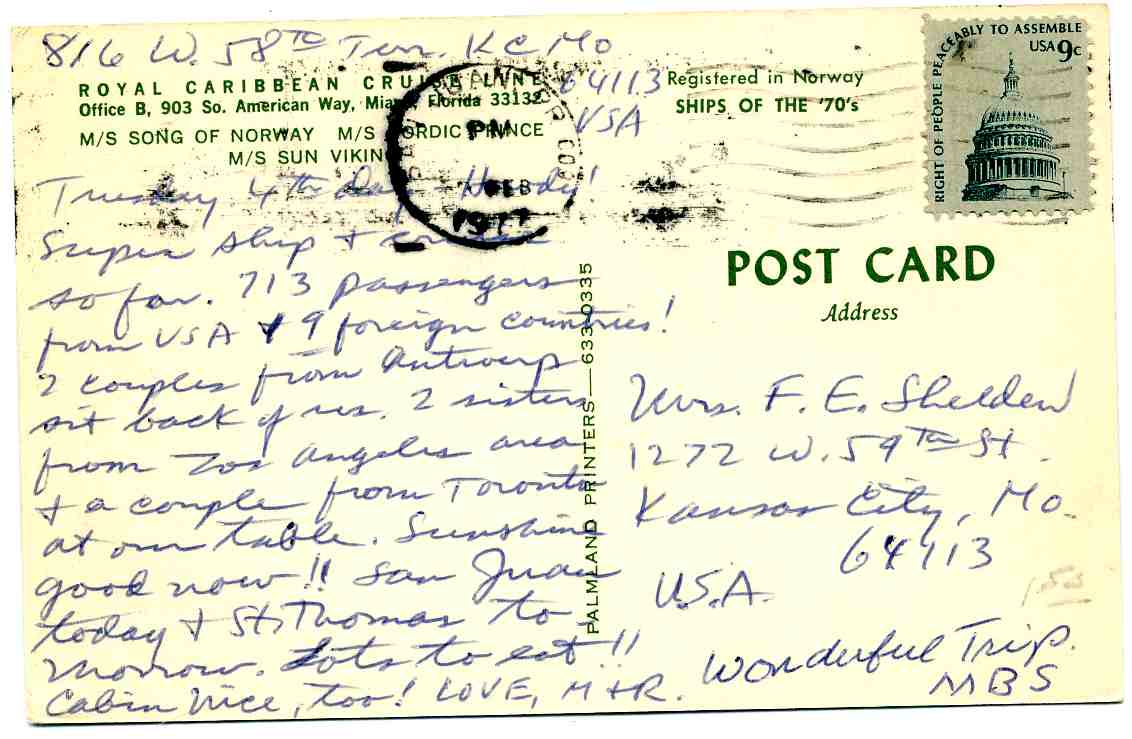 816 W. 58TH Terr. KC Mo
64113
USA
ROYAL CARIBBEAN CRUISE LINE
Office B, 903 So. American Way, Miami, Florida 33132
M/S SONG OF NORWAY M/S NORDIC PRINCE
M/S SUN VIKING
Registered in Norway
SHIPS OF THE '70's
RIGHT OF PEOPLE PEACEABLY TO ASSEMBLE
USA 9c
PM
FEB
1977
Tuesday 4th Day Howdy!
Super ship & cruise
so far. 713 passengers
from USA & 9 foreign countries!
2 couples from Antwerp
sit back of us. 2 sisters
from Los Angeles area
& a couple from Toronto
at our table. Sunshine
good now!! San Juan
today & St. Thomas to-
morrow. Lots to eat!!
Cabin nice, too! LOVE, M+R.
PALMLAND PRINTERS—633-0335
POST CARD
Address
Mrs. F. E. Shelden
1272 W. 59TH St.
Kansas City, Mo.
64113
U.S.A.
Wonderful Trip.
MBS